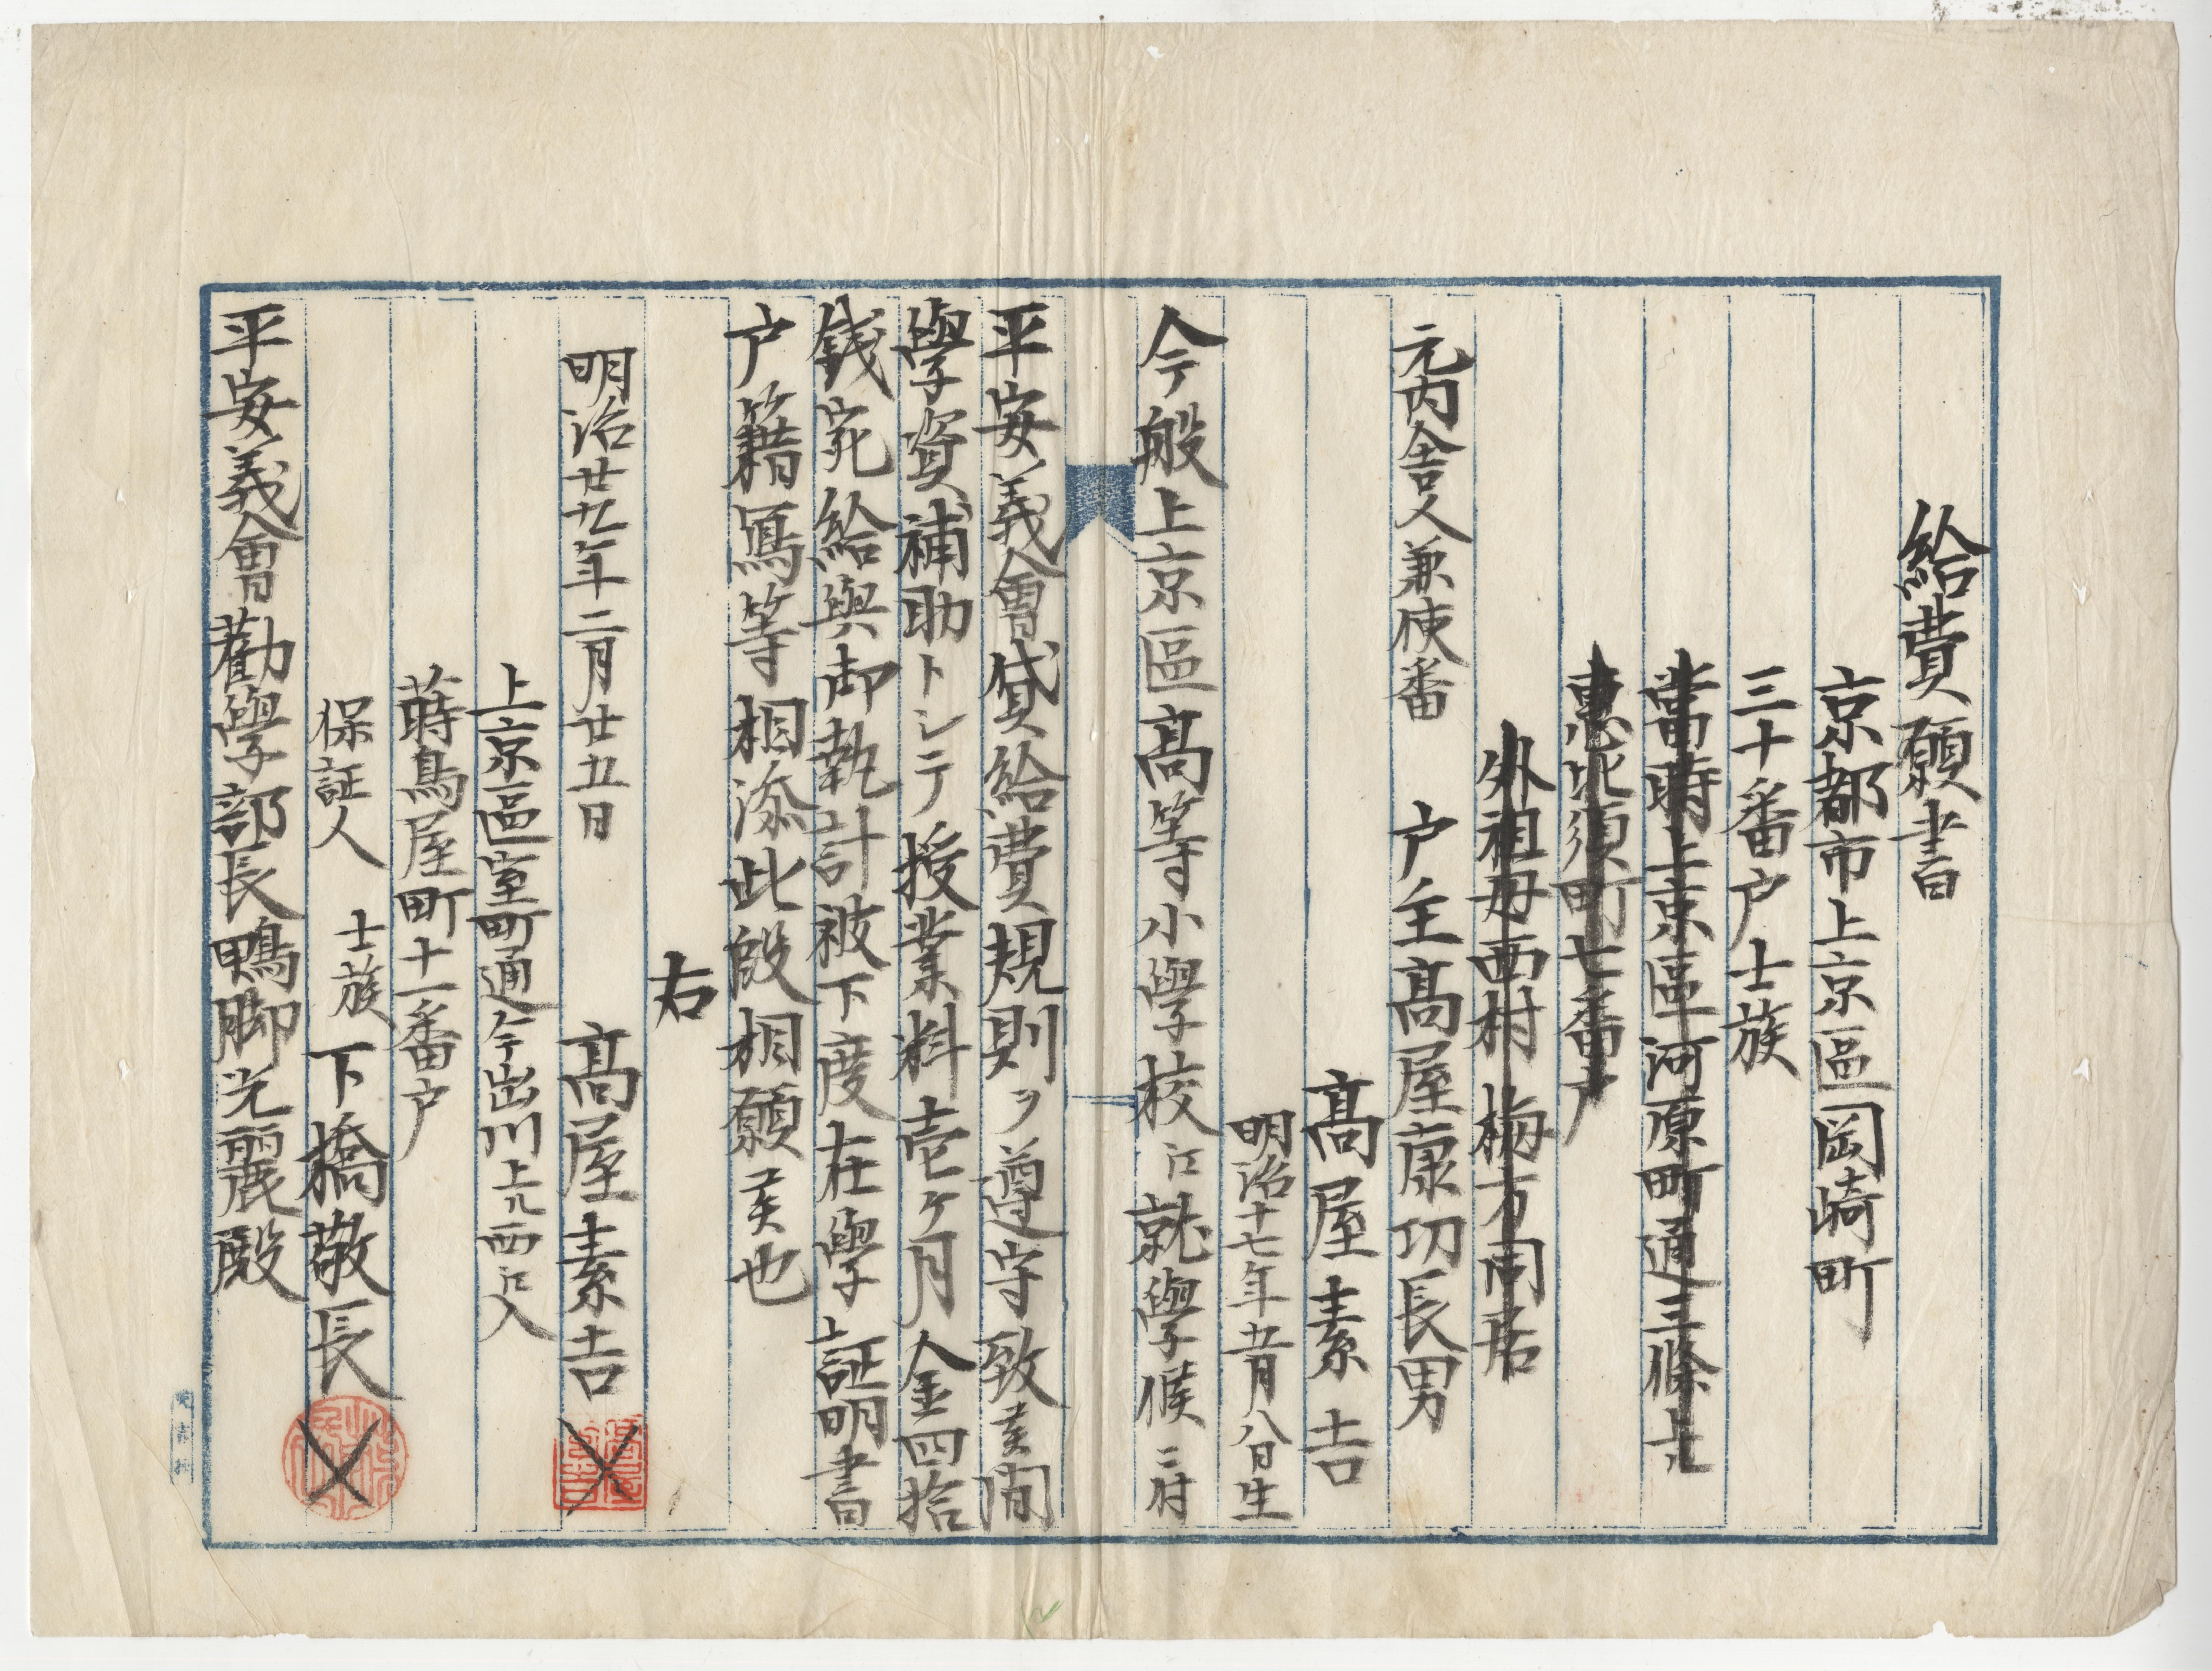 給費願書
京都市上京區岡崎町
三十番戸士族
當時上京區河原町通三條上ル
惠比須町七番戸
外祖母西村梅方同居
元内舎人兼使番　戸主髙屋康功長男
髙屋素吉
明治十七年五月八日生
今般上京區髙等小學校江就學候ニ付
平安義會貸給費規則ヲ遵守致候間
學資補助トシテ授業料壱ケ月金四拾
銭宛給與御執計被下度在學証明書
戸籍寫等相添此段相願候也
右
明治廿九年二月廿五日　髙屋素吉
上京區室町通今出川上ル西江入
蒔鳥屋町十一番戸
保証人　士族　下橋敬長
平安義會勸學部長鴨脚光麗殿